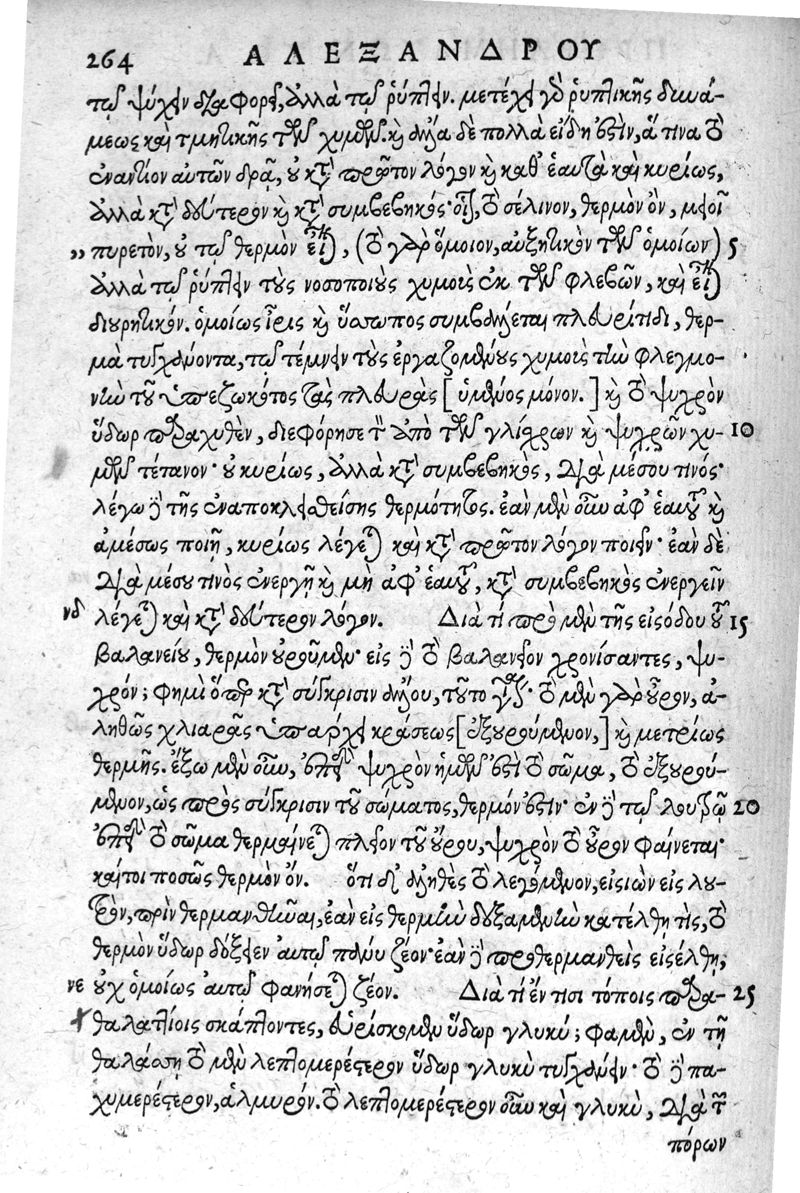 264 ΑΛΕΞΑΝΔΡΟΥ
τῷ ψύχειν διαφορεῖ, ἀλλὰ τῷ ῥύπτειν. μετέχει γὸ ῥυπτικῆς δυνά-
μεως καὶ τμητικῆς τῶν χυμῶν. καὶ ἄλλα δὲ πολλὰ εἴδη ἐστὶν, ἅ τινα τὸ
ἐναντίον αὐτῶν δρᾷ, οὐ κατὰ πρῶτον λόγον καὶ καθ' ἑαυτὰ καὶ κυρίως,
ἀλλὰ κατὰ δεύτερον καὶ κατὰ συμβεβηκός· οἷον, τὸ σέλινον, θερμὸν ὂν, μειοῖ
„ πυρετὸν, οὐ τῷ θερμὸν εἶναι, (τὸ γὰρ ὅμοιον, αὐξητικὸν τῶν ὁμοίων) 5
ἀλλὰ τῷ ῥύπτειν τοὺς νοσοποιοὺς χυμοὺς ἐκ τῶν φλεβῶν, καὶ εἶναι
διουρητικόν. ὁμοίως ἶρις καὶ ὕσσωπος συμβάλλεται πλευρίτιδι, θερ-
μὰ τυγχάνοντα, τῷ τέμνειν τοὺς ἐργαζομένους χυμοὺς τὴν φλεγμο-
νὴν τοῦ ὑπεζωκότος τὰς πλευρὰς [ὑμένος μόνον.] καὶ τὸ ψυχρὸν
ὕδωρ προχυθὲν, διεφόρησε τὸν ἀπὸ τῶν γλίσχρων καὶ ψυχρῶν χυ- 10
μῶν τέτανον· οὐ κυρίως, ἀλλὰ κατὰ συμβεβηκὸς, διὰ μέσου τινός·
λέγω δὲ τῆς ἐναποκλεισθείσης θερμότητος. ἐὰν μὲν οὖν ἀφ' ἑαυτοῦ καὶ
ἀμέσως ποιῇ, κυρίως λέγεται καὶ κατὰ πρῶτον λόγον ποιεῖν· ἐὰν δὲ
διὰ μέσου τινὸς ἐνεργῇ καὶ μὴ ἀφ' ἑαυτοῦ, κατὰ συμβεβηκὸς ἐνεργεῖν
νδ λέγεται καὶ κατὰ δεύτερον λόγον. Διὰ τί πρὸ μὲν τῆς εἰσόδου τοῦ 15
βαλανείου, θερμὸν οὐροῦμεν· εἰς δὲ τὸ βαλανεῖον χρονίσαντες, ψυ-
χρόν; φημὶ ὅπερ κατὰ σύγκρισιν ἄλλου, τοῦτο γίνεται· τὸ μὲν γὰρ οὖρον, ἀ-
ληθῶς χλιαρᾶς ὑπάρχει κράσεως [ἐξουρούμενον,] καὶ μετρίως
θερμῆς. ἔξω μὲν οὖν, ἐπειδὴ ψυχρὸν ἡμῶν ἐστὶ τὸ σῶμα, τὸ ἐξουρού-
μενον, ὡς πρὸς σύγκρισιν τοῦ σώματος, θερμόν ἐστιν· ἐν δὲ τῷ λουτρῷ 20
ἐπειδὴ τὸ σῶμα θερμαίνεται πλεῖον τοῦ οὔρου, ψυχρὸν τὸ οὖρον φαίνεται·
καίτοι ποσῶς θερμὸν ὄν. ὅτι δὲ ἀληθὲς τὸ λεγόμενον, εἰσιὼν εἰς λου-
τρὸν, πρὶν θερμανθῆναι, ἐὰν εἰς θερμὴν δεξαμενὴν κατέλθῃ τις, τὸ
θερμὸν ὕδωρ δόξειεν αὐτῷ πάνυ ζέον· ἐὰν δὲ προθερμανθεὶς εἰσέλθῃ,
νε οὐχ ὁμοίως αὐτῷ φανήσεται ζέον. Διὰ τί ἔν τισι τόποις παρα- 25
θαλαττίοις σκάπτοντες, εὑρίσκομεν ὕδωρ γλυκύ; φαμὲν, ἐν τῇ
θαλάσσῃ τὸ μὲν λεπτομερέστερον ὕδωρ γλυκὺ τυγχάνειν· τὸ δὲ πα-
χυμερέστερον, ἁλμυρόν. τὸ λεπτομερέστερον οὖν καὶ γλυκὺ, διὰ τῶν
πόρων